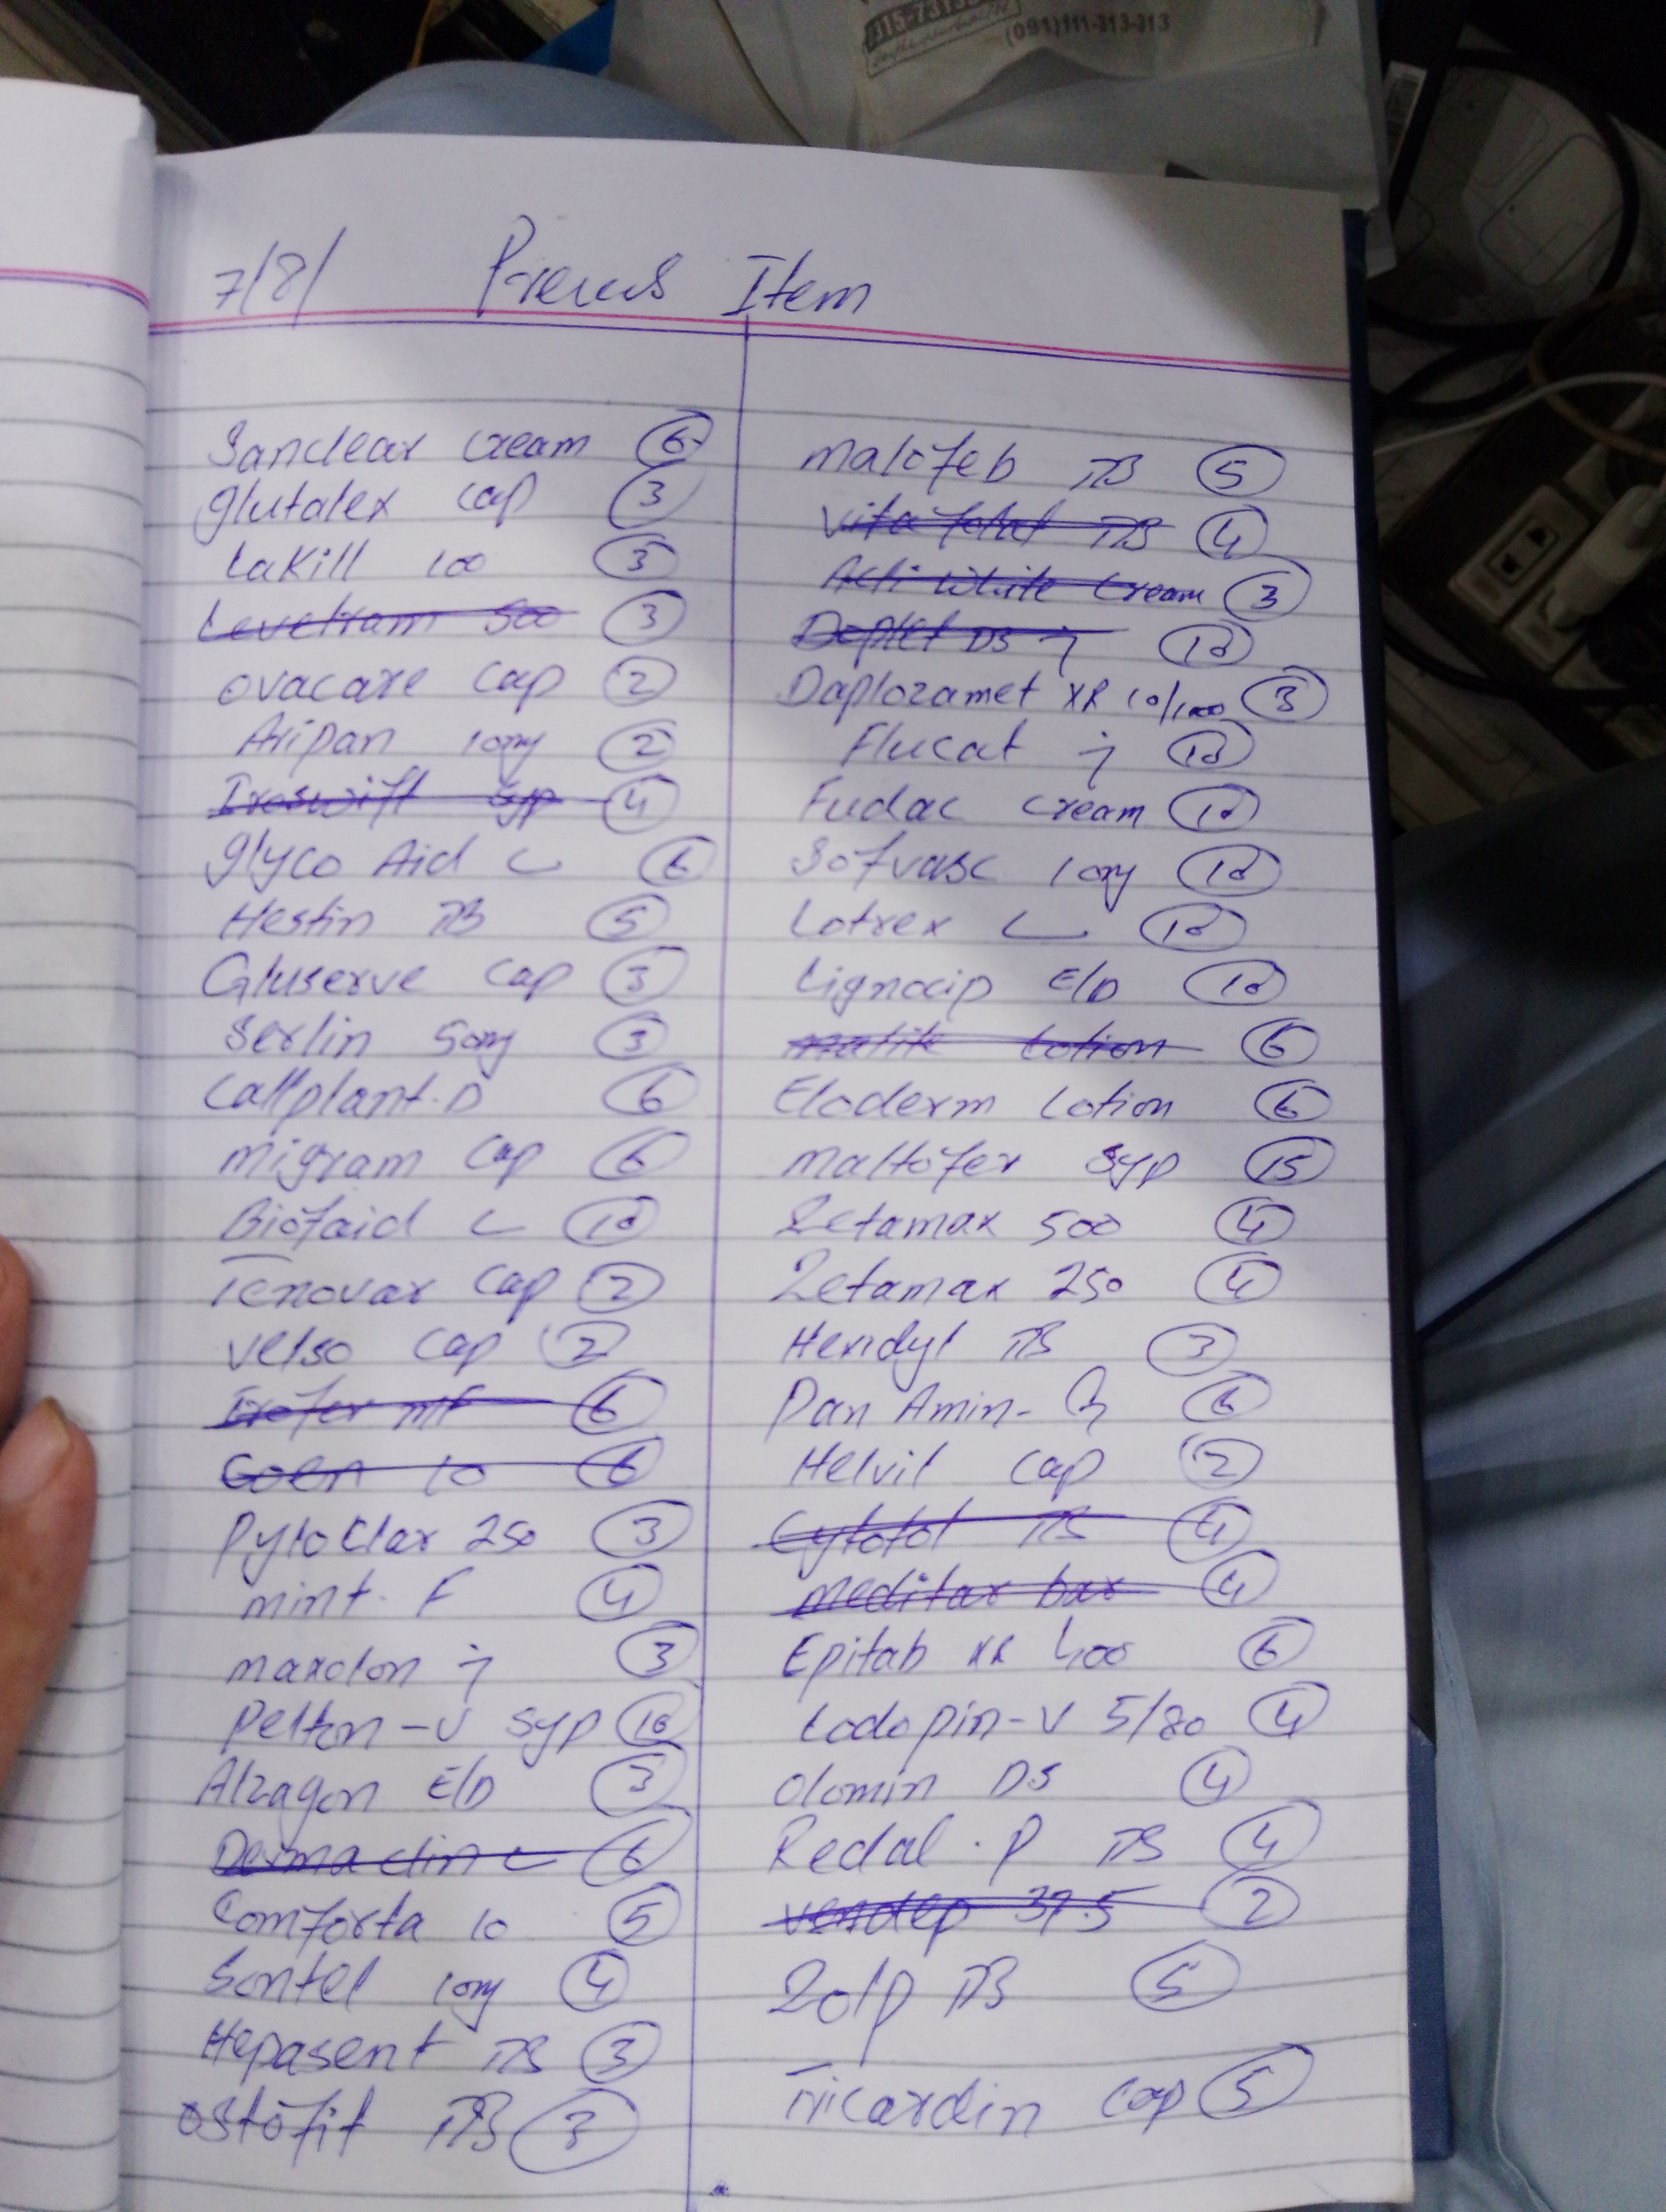 (091)111-313-313
7/8/ Previus Item
Sanclear cream 6
glutalex cap 3
Lakill 100 3
Levetram 500 3
ovacare cap 2
Aripan 10mg 2
Iroswift syp 4
glyco Aid C 6
Hestin TB 5
Gluserve cap 3
Serlin 50mg 3
Callplant.D 6
migram cap 6
Biofaid C 10
Tenovar cap 2
velso cap 2
Irofer mF 6
Coen 10 6
Pyloclar 250 3
mint. F 4
maxolon inj 3
Pelton-V syp 10
Alzagon E/D 3
Dermaclin C 6
Comforta 10 5
Sontel 10mg 4
Hepasent TB 3
ostofit TB 3
malofeb TB 5
vita total TB 4
Acti white cream 3
Doplet DS inj 10
Daplozamet XR 10/1000 3
Flucat inj 10
Fudac cream 10
Sofvasc 10mg 10
Lotrex C 10
Lignocip E/D 10
Lotion 6
Eloderm Lotion 6
maltofer syp 15
Zetamax 500 4
Zetamax 250 4
Heridyl TB 3
Pan Amin- 6
Helvil cap 2
Cytotol TB 4
meditar bar 4
Epitab XR 400 6
Lodopin-V 5/80 4
olomin DS 4
Redal.P TB 4
vendep 37.5 2
Zolp TB 5
Tricardin cap 5